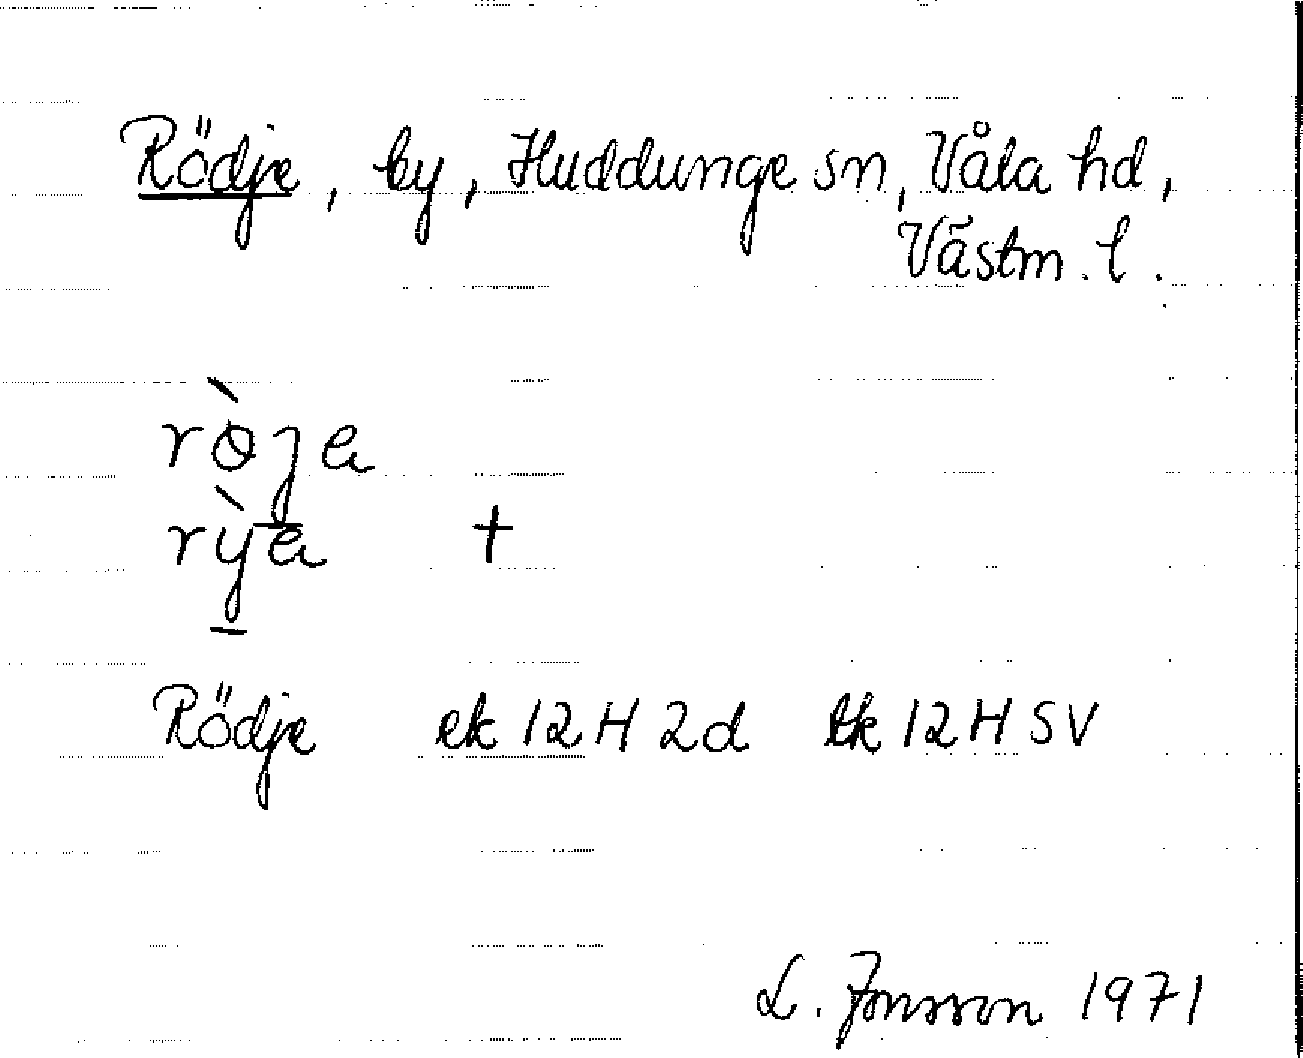 Rödje, by, Huddunge sn, Våla hd,
Västm. l.
rø̀ɟa
rỳa †
Rödje ek 12H 2d tk 12H SV
L. Jonsson 1971